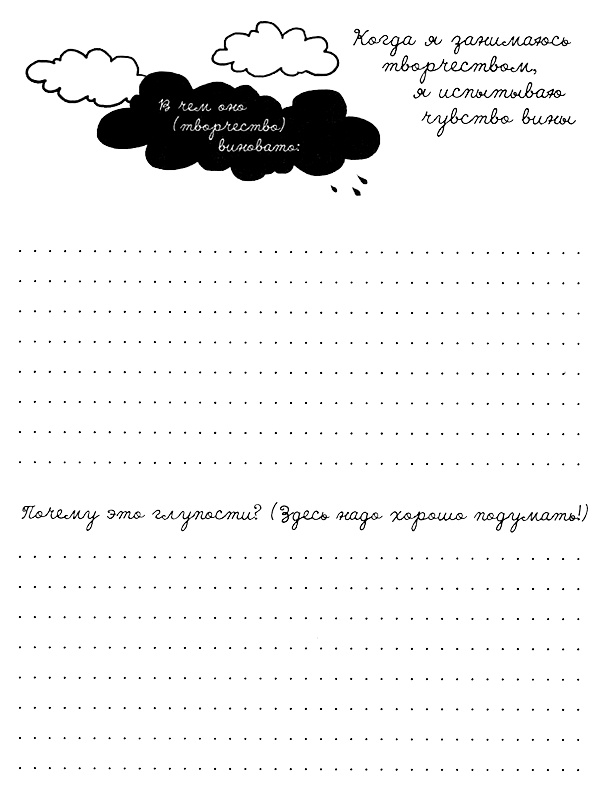 Когда я занимаюсь
творчеством,
я испытываю
чувство вины
В чем оно
(творчество)
виновато:
Почему это глупости? (Здесь надо хорошо подумать!)